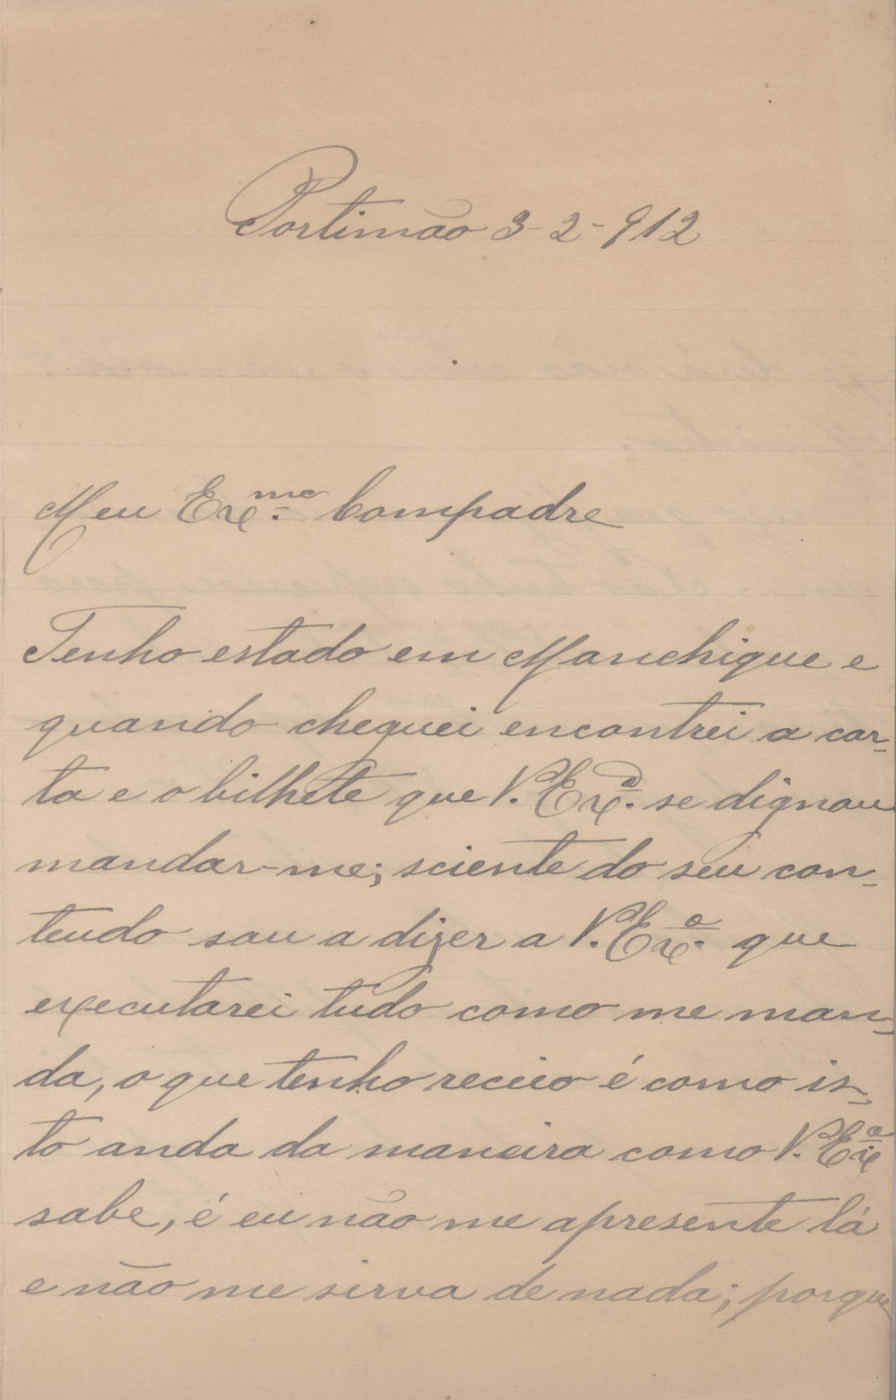 Portimão 3-2-912
Meu Ex.mo Compadre
Tenho estado em Monchique e
quando cheguei encontrei a car-
ta e o bilhete que V. Ex.a se dignou
mandar-me; sciente do seu con-
teudo sou a dizer a V. Ex.a que
executarei tudo como me man-
da, o que tenho receio é como is-
to anda da maneira como V. Ex.a
sabe, é eu não me apresente lá
e não me sirva de nada; porque